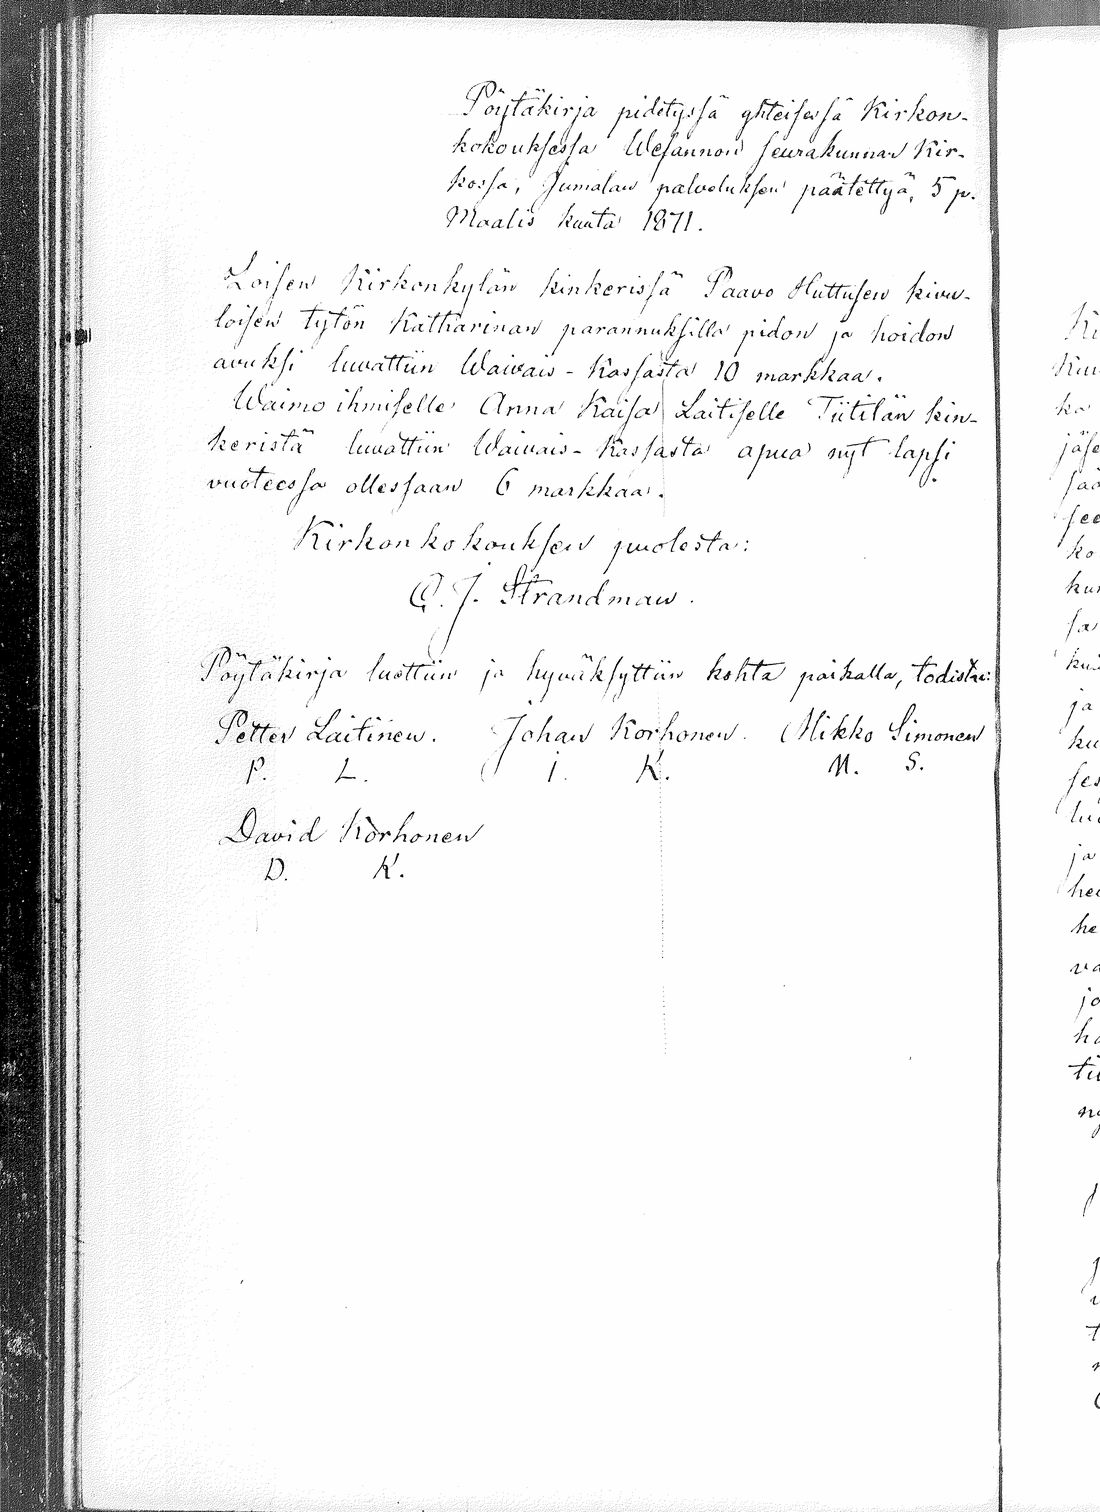 Pöytäkirja pidetyssä yhteisessä Kirkon-
kokouksessa Wesannon seurakunnan Kir-
kossa, Jumalan palveluksen päätettyä, 5 p.
Maalis kuuta 1871.
Loisen Kirkonkylän kinkerissä Paavo Huttusen kivu-
loisen tytön Katharinan parannuksilla pidon ja hoidon
avuksi luvattiin Waivais-Kassasta 10 markkaa.
Waimo ihmiselle Anna Kaisa Laitiselle Tiitilän kin-
keristä luvattiin Waivais-Kassasta apua nyt lapsi
vuoteessa ollessaan 6 markkaa.
Kirkonkokouksen puolesta:
J. Strandman.
Pöytäkirja luettiin ja hyväksyttiin kohta paikalla, todista:
Petter Laitinen. Johan Korhonen. Mikko Simonen
P. L. I. K. M. S.
David Korhonen
D. K.